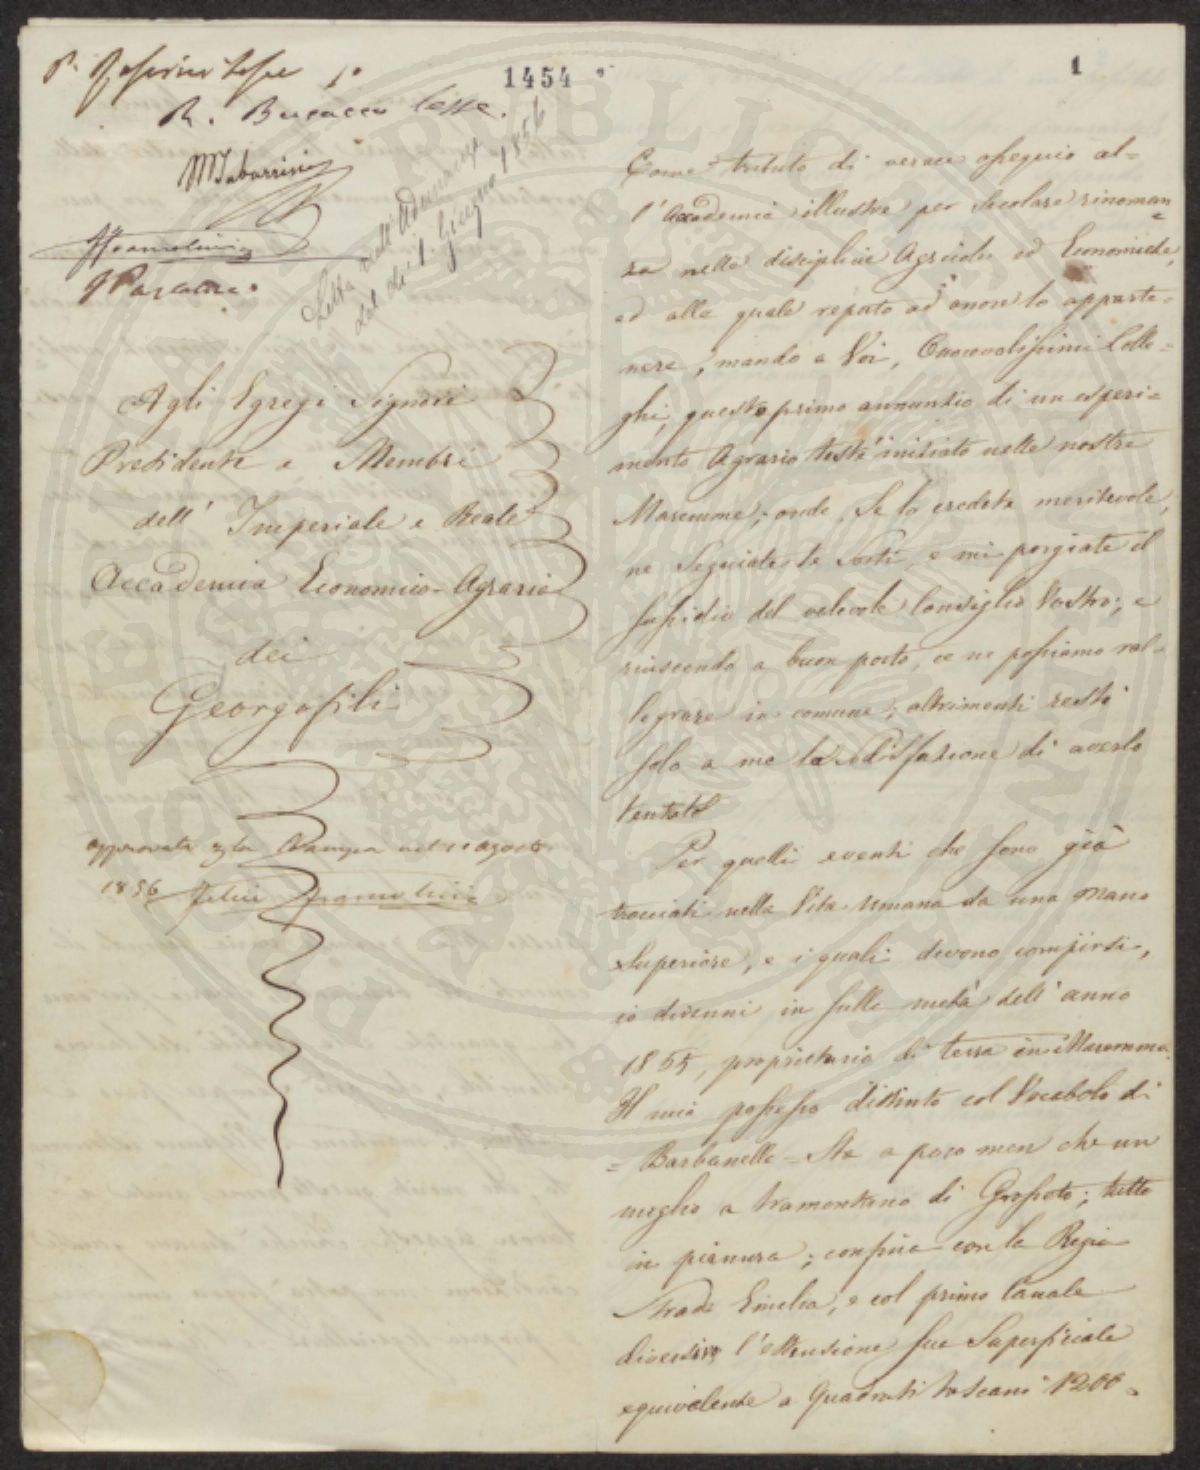 1454
1
R. Busacca lesse.
MTabarrini
Letta nell'Adunanza
del dì 1. Giugno 1856
Agli Egregi Signori
Presidente e Membri
dell' Imperiale e Reale
Accademia Economico-Agraria
dei
Georgofili
approvata la Stampa nel agosto
1856
Come tributo di verace ossequio al=
l'Accademia illustre per secolare rinoman
za nelle discipline Agricole ed Economiche,
ed alla quale reputo ad onore lo apparte=
nere, mando a Voi, Onorevolissimi Colle=
ghi, questo primo annunzio di un esperi=
mento Agrario testè iniziato nelle nostre
Maremme; onde, se lo credete meritevole,
ne seguiate le sorti, e mi porgiate il
sussidio del valevole Consiglio Vostro; e
riuscendo a buon porto, ce ne possiamo ral=
legrare in comune; altrimenti resti
solo a me la sodisfazione di averlo
tentato
Per quelli eventi che sono già
tracciati nella Vita umana da una Mano
Superiore, e i quali devono compirsi,
io divenni in sulla metà dell'anno
1855, proprietario di terra in Maremma.
Il mio possesso distinto col Vocabolo di
= Barbanella = Sta a poco men che un
miglio a tramontana di Grosseto; tutto
in pianura; confina con la Regia
Strada Emilia, e col primo Canale
diversivo l'estensione sua Superficiale
equivalente a Quadrati toscani 1200.